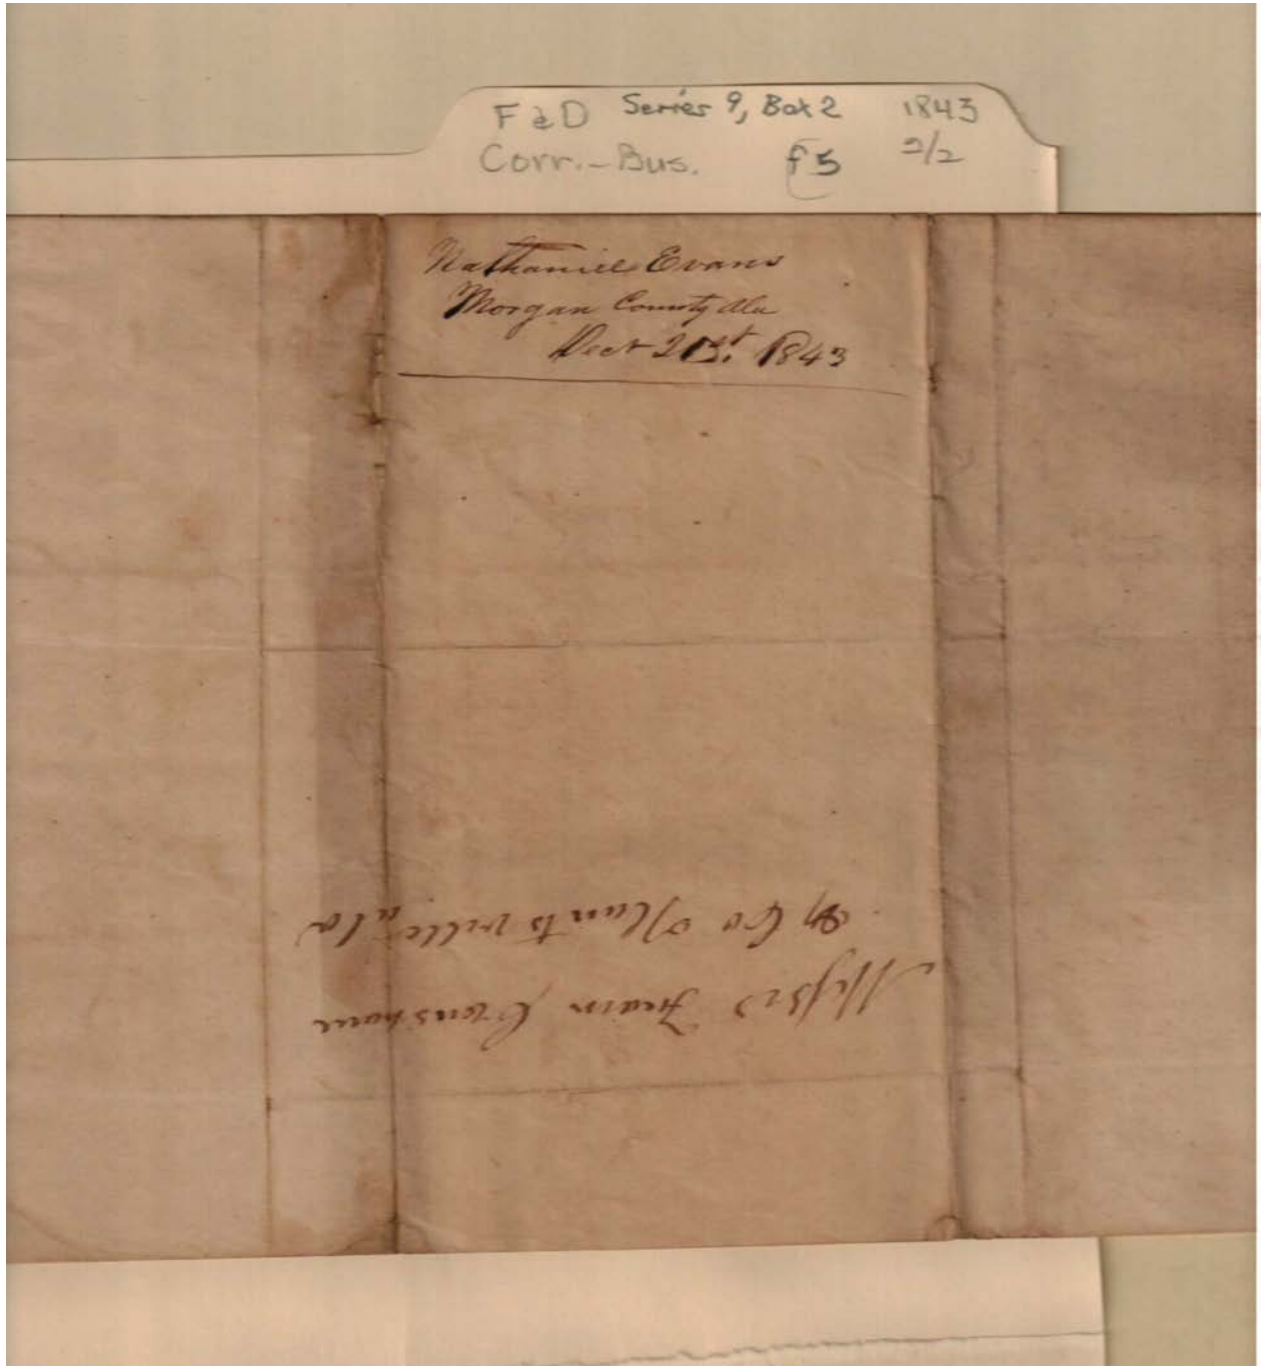 F & D Series 9, Box 2 1843
Corr.-Bus. f5 2/2
Nathaniel Evans
Morgan County Ala
Dect 21st. 1843
Messrs Fearn Crenshaw
& Co Huntsville ala